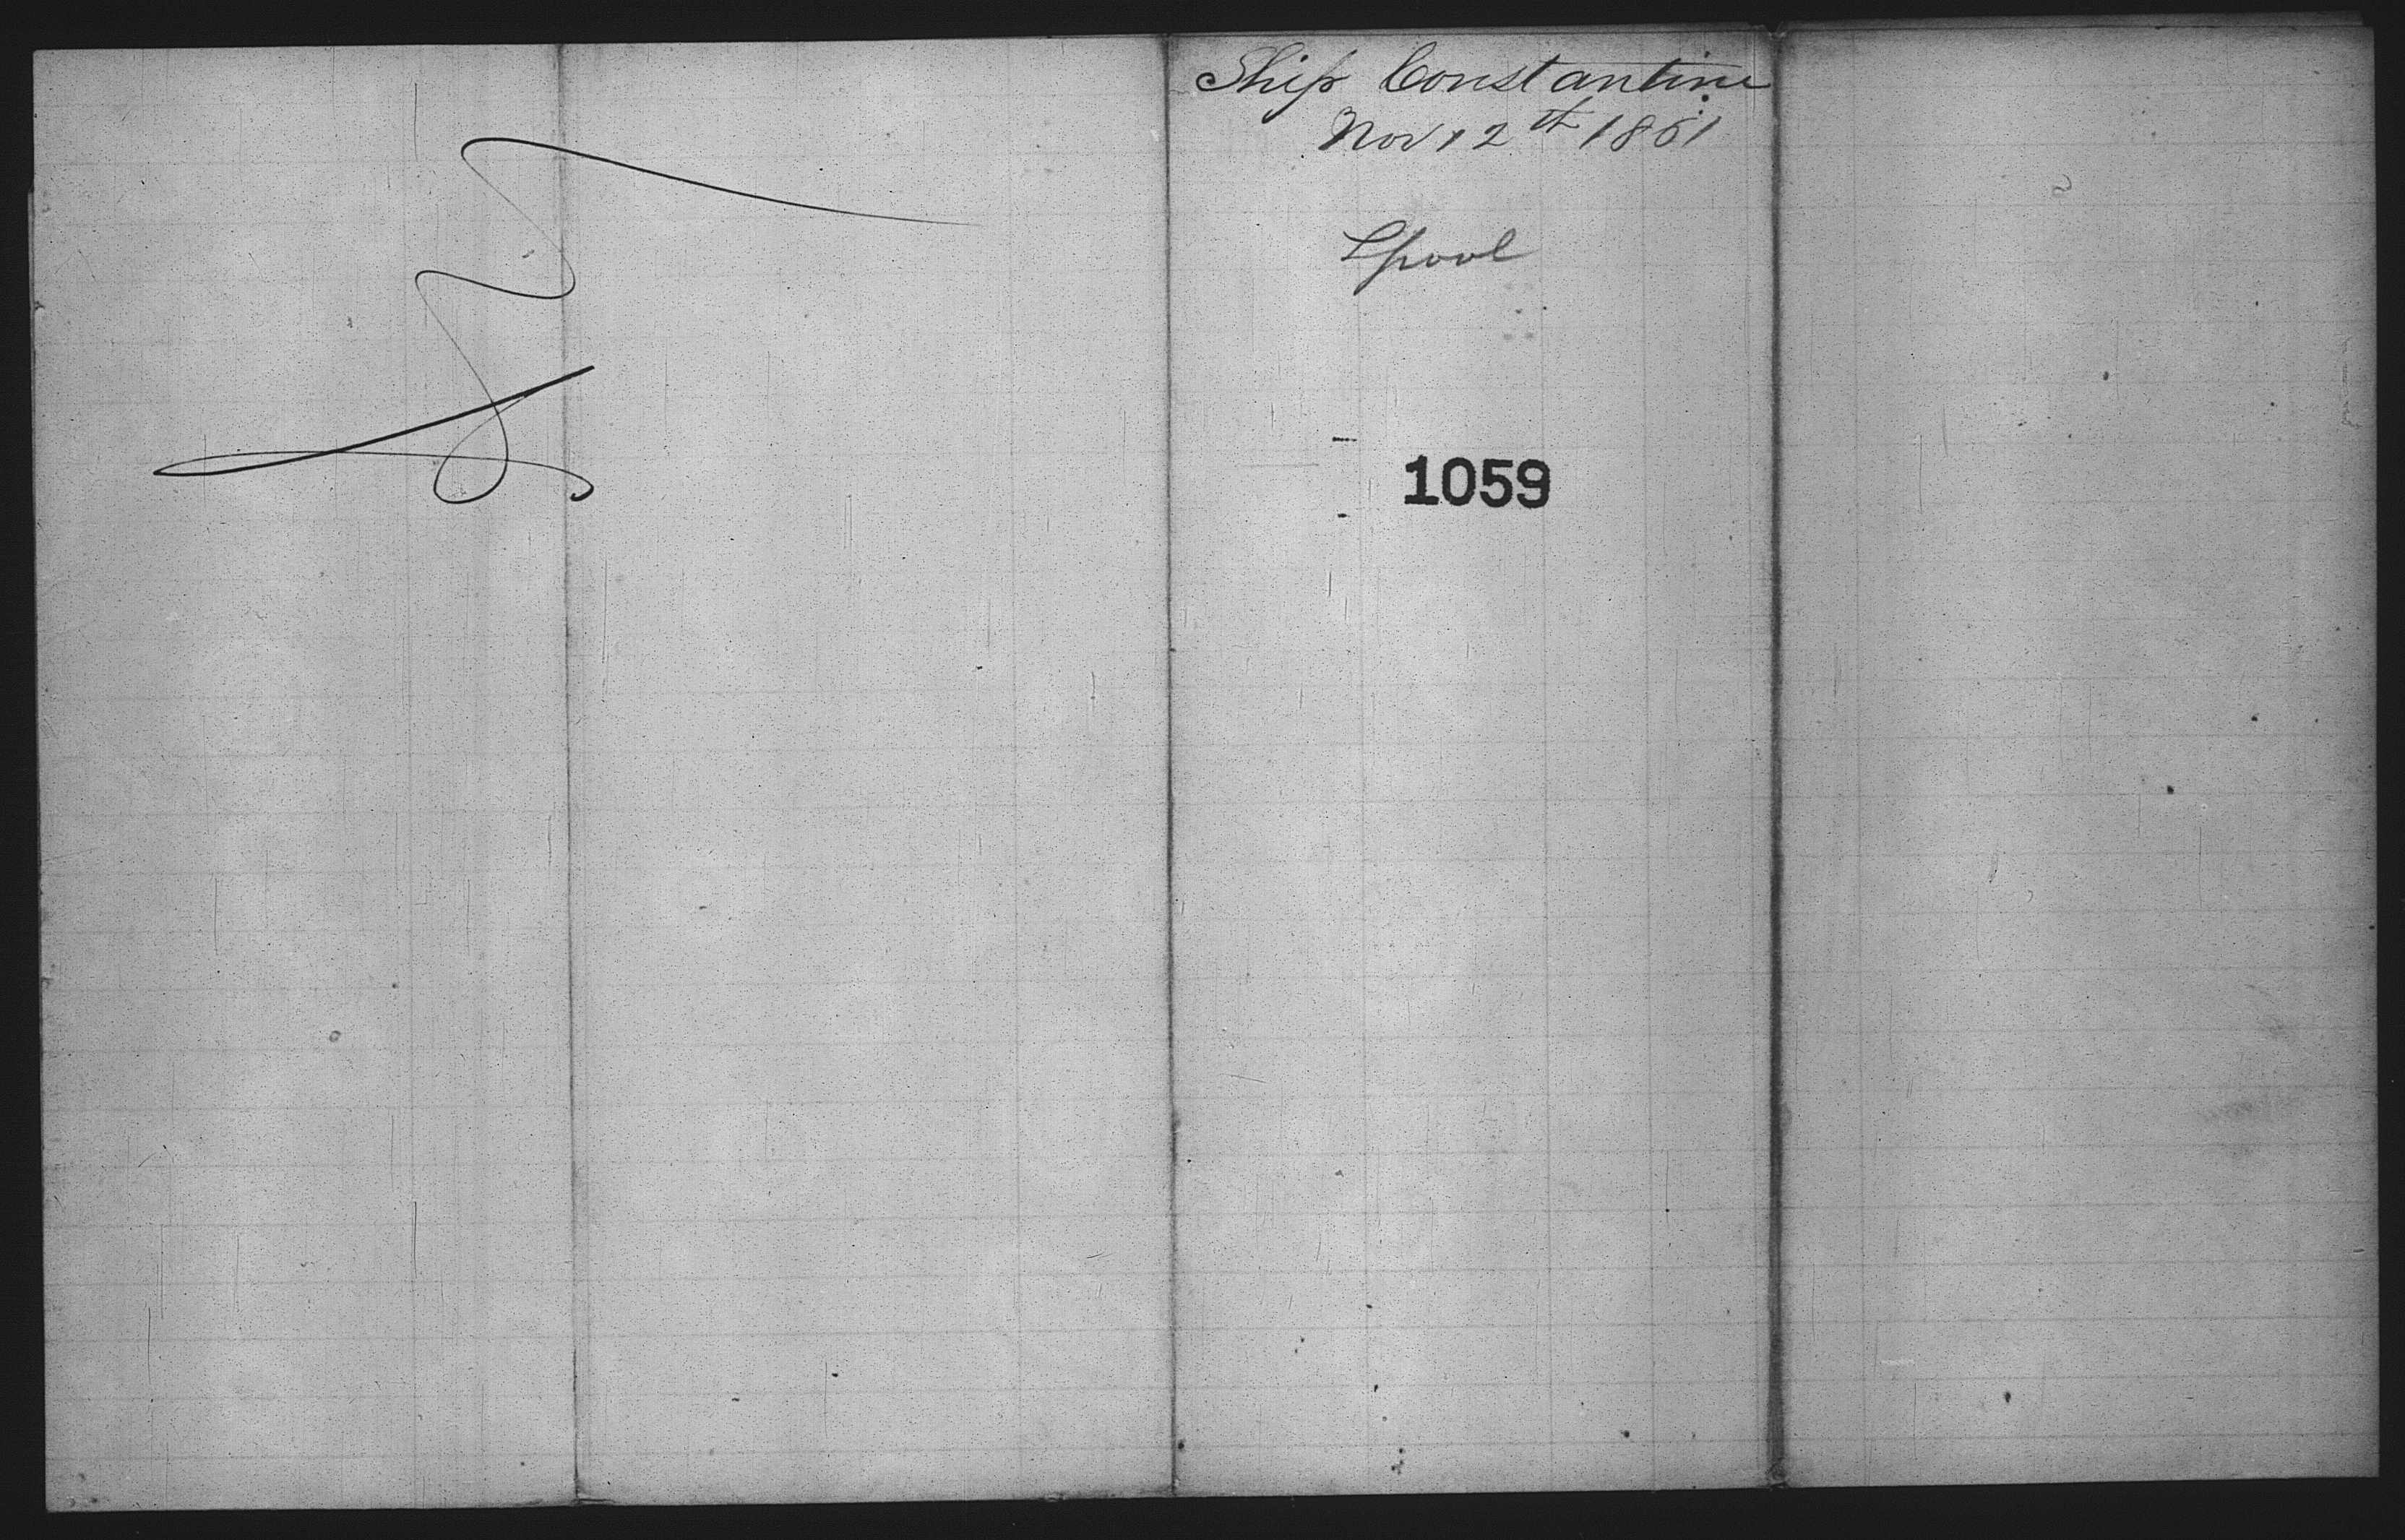 Ship Constantine
Nov 12th 1861
Lpool
1059